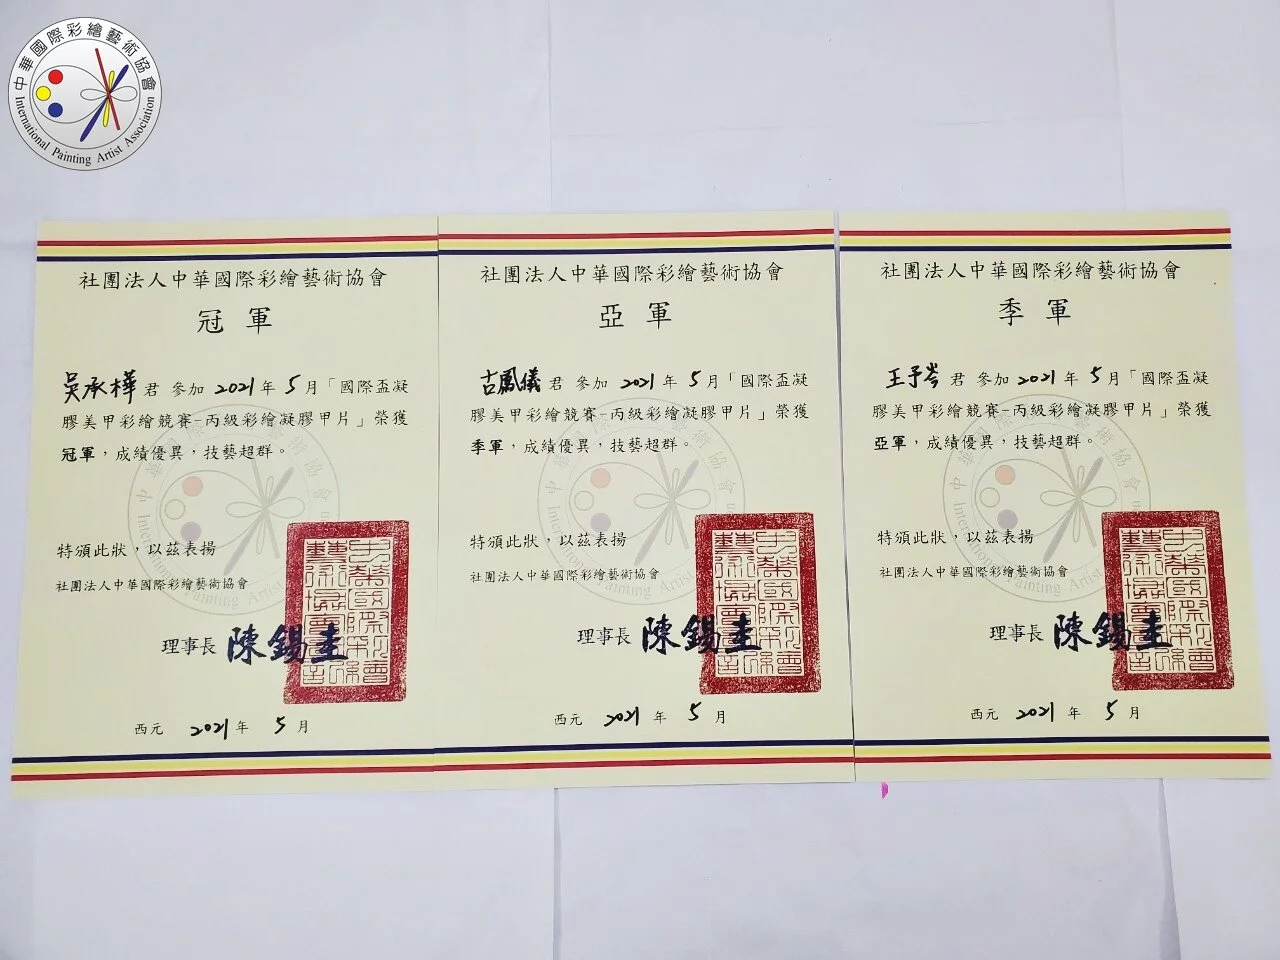 中華國際彩繪藝術協會
International Painting Artist Association
社團法人中華國際彩繪藝術協會
冠軍
吳承樺 君 參加 2021 年 5 月「國際盃凝
膠美甲彩繪競賽-丙級彩繪凝膠甲片」榮獲
冠軍，成績優異，技藝超群。
特頒此狀，以茲表揚
社團法人中華國際彩繪藝術協會
理事長 陳錫圭
西元 2021 年 5 月
社團法人中華國際彩繪藝術協會
亞軍
古鳳儀 君 參加 2021 年 5 月「國際盃凝
膠美甲彩繪競賽-丙級彩繪凝膠甲片」榮獲
季軍，成績優異，技藝超群。
特頒此狀，以茲表揚
社團法人中華國際彩繪藝術協會
理事長 陳錫圭
西元 2021 年 5 月
社團法人中華國際彩繪藝術協會
季軍
王予岑 君 參加 2021 年 5 月「國際盃凝
膠美甲彩繪競賽-丙級彩繪凝膠甲片」榮獲
亞軍，成績優異，技藝超群。
特頒此狀，以茲表揚
社團法人中華國際彩繪藝術協會
理事長 陳錫圭
西元 2021 年 5 月